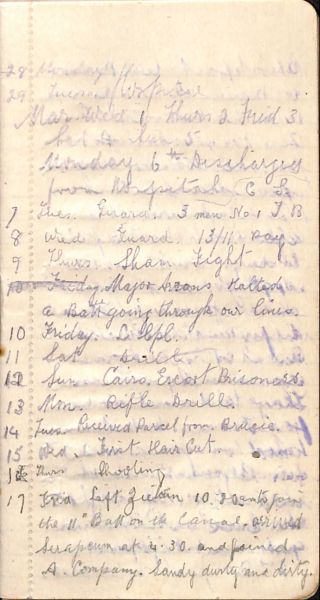 28 Monday
29 Tuesday Hospital
Mar. Wed 1 Thurs 2 Frid 3
Sat 4 Sun 5
Monday 6th Discharged
from Hospital. C
7 Tues. Guard. 3 men No 1 T. B
8 Wed Guard. 13/11 Pay
9 Thurs. Sham Fight
10 Friday Major Arrons Halted
a Batt going through our lines.
10 Friday.
11 Sat Drill
12 Sun Cairo. Escort Prisoners
13 Mon. Rifle Drill.
14 Tues Received Parcel from
15 Wed. First Hair Cut.
16 Thurs Shooting
17 Frid Left Zietoun 10.20 to join
the 11th Batt on the Canal. arrived
Serapeum at 4.30. and joined
A. Company. Sandy dusty and dirty.